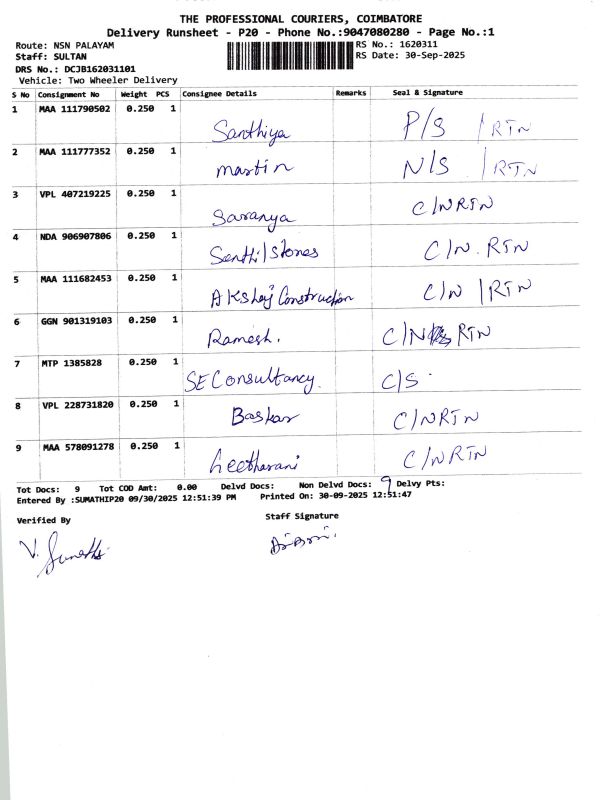 THE PROFESSIONAL COURIERS, COIMBATORE
Delivery Runsheet - P20 - Phone No.:9047080280 - Page No.:1
Route: NSN PALAYAM RS No.: 1620311
Staff: SULTAN RS Date: 30-Sep-2025
DRS No.: DCJB162031101
Vehicle: Two Wheeler Delivery
S No Consignment No Weight PCS Consignee Details Remarks Seal & Signature
1 MAA 111790502 0.250 1 Santhiya P/S /RTN
2 MAA 111777352 0.250 1 martin N/S /RTN
3 VPL 407219225 0.250 1 Saranya C/NRTN
4 NDA 906907806 0.250 1 Senthil Stones C/N. RTN
5 MAA 111682453 0.250 1 Akshaj Construction C/N /RTN
6 GGN 901319103 0.250 1 Ramesh. C/N RTN
7 MTP 1385828 0.250 1 SE Consultancy. C/S.
8 VPL 228731820 0.250 1 Baskar C/NRTN
9 MAA 578091278 0.250 1 Geetharani C/NRTN
Tot Docs: 9 Tot COD Amt: 0.00 Delvd Docs: Non Delvd Docs: 9 Delvy Pts:
Entered By :SUMATHIP20 09/30/2025 12:51:39 PM Printed On: 30-09-2025 12:51:47
Verified By Staff Signature
V. Sumathi